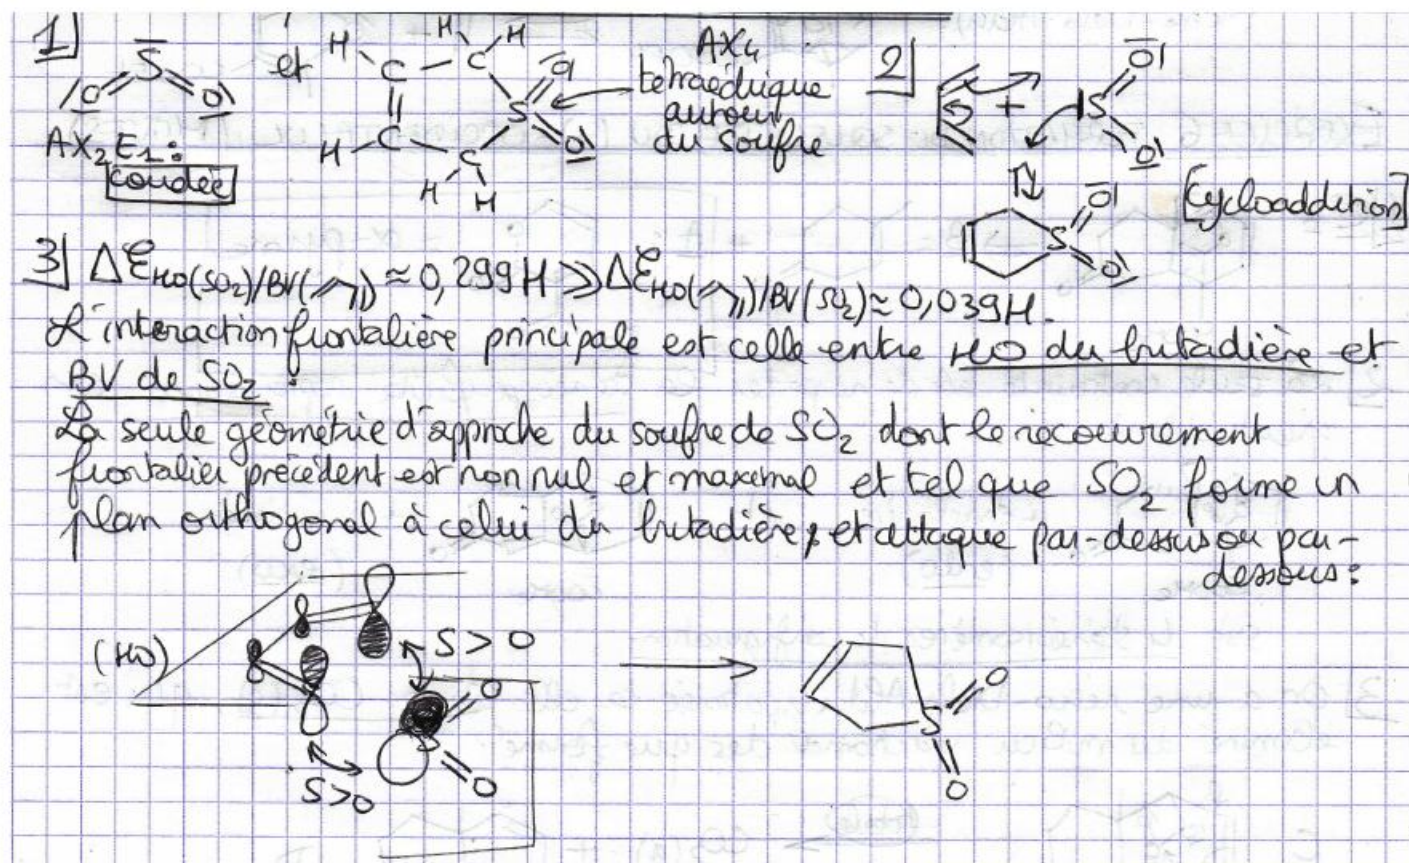 1]
S
O O
et
H H H
C – C
C
H C
H H
O
S
O
AX4
tétraédrique
autour
du soufre
AX2E1:
coudée
2]
+
S
O
O
S
O
O
[Cycloaddition]
3] ΔE HO(SO2)/BV( ) ≈ 0,299H >> ΔE HO( )/BV(SO2) ≈ 0,039H.
L'interaction frontalière principale est celle entre HO du butadière et
BV de SO2.
La seule géométrie d'approche du soufre de SO2 dont le recouvrement
frontalier précédent est non nul et maximal et tel que SO2 forme un
plan orthogonal à celui du butadière, et attaque par-dessus ou par-
dessous:
(HO)
S > 0
O
S
O
S>0
S
O
O